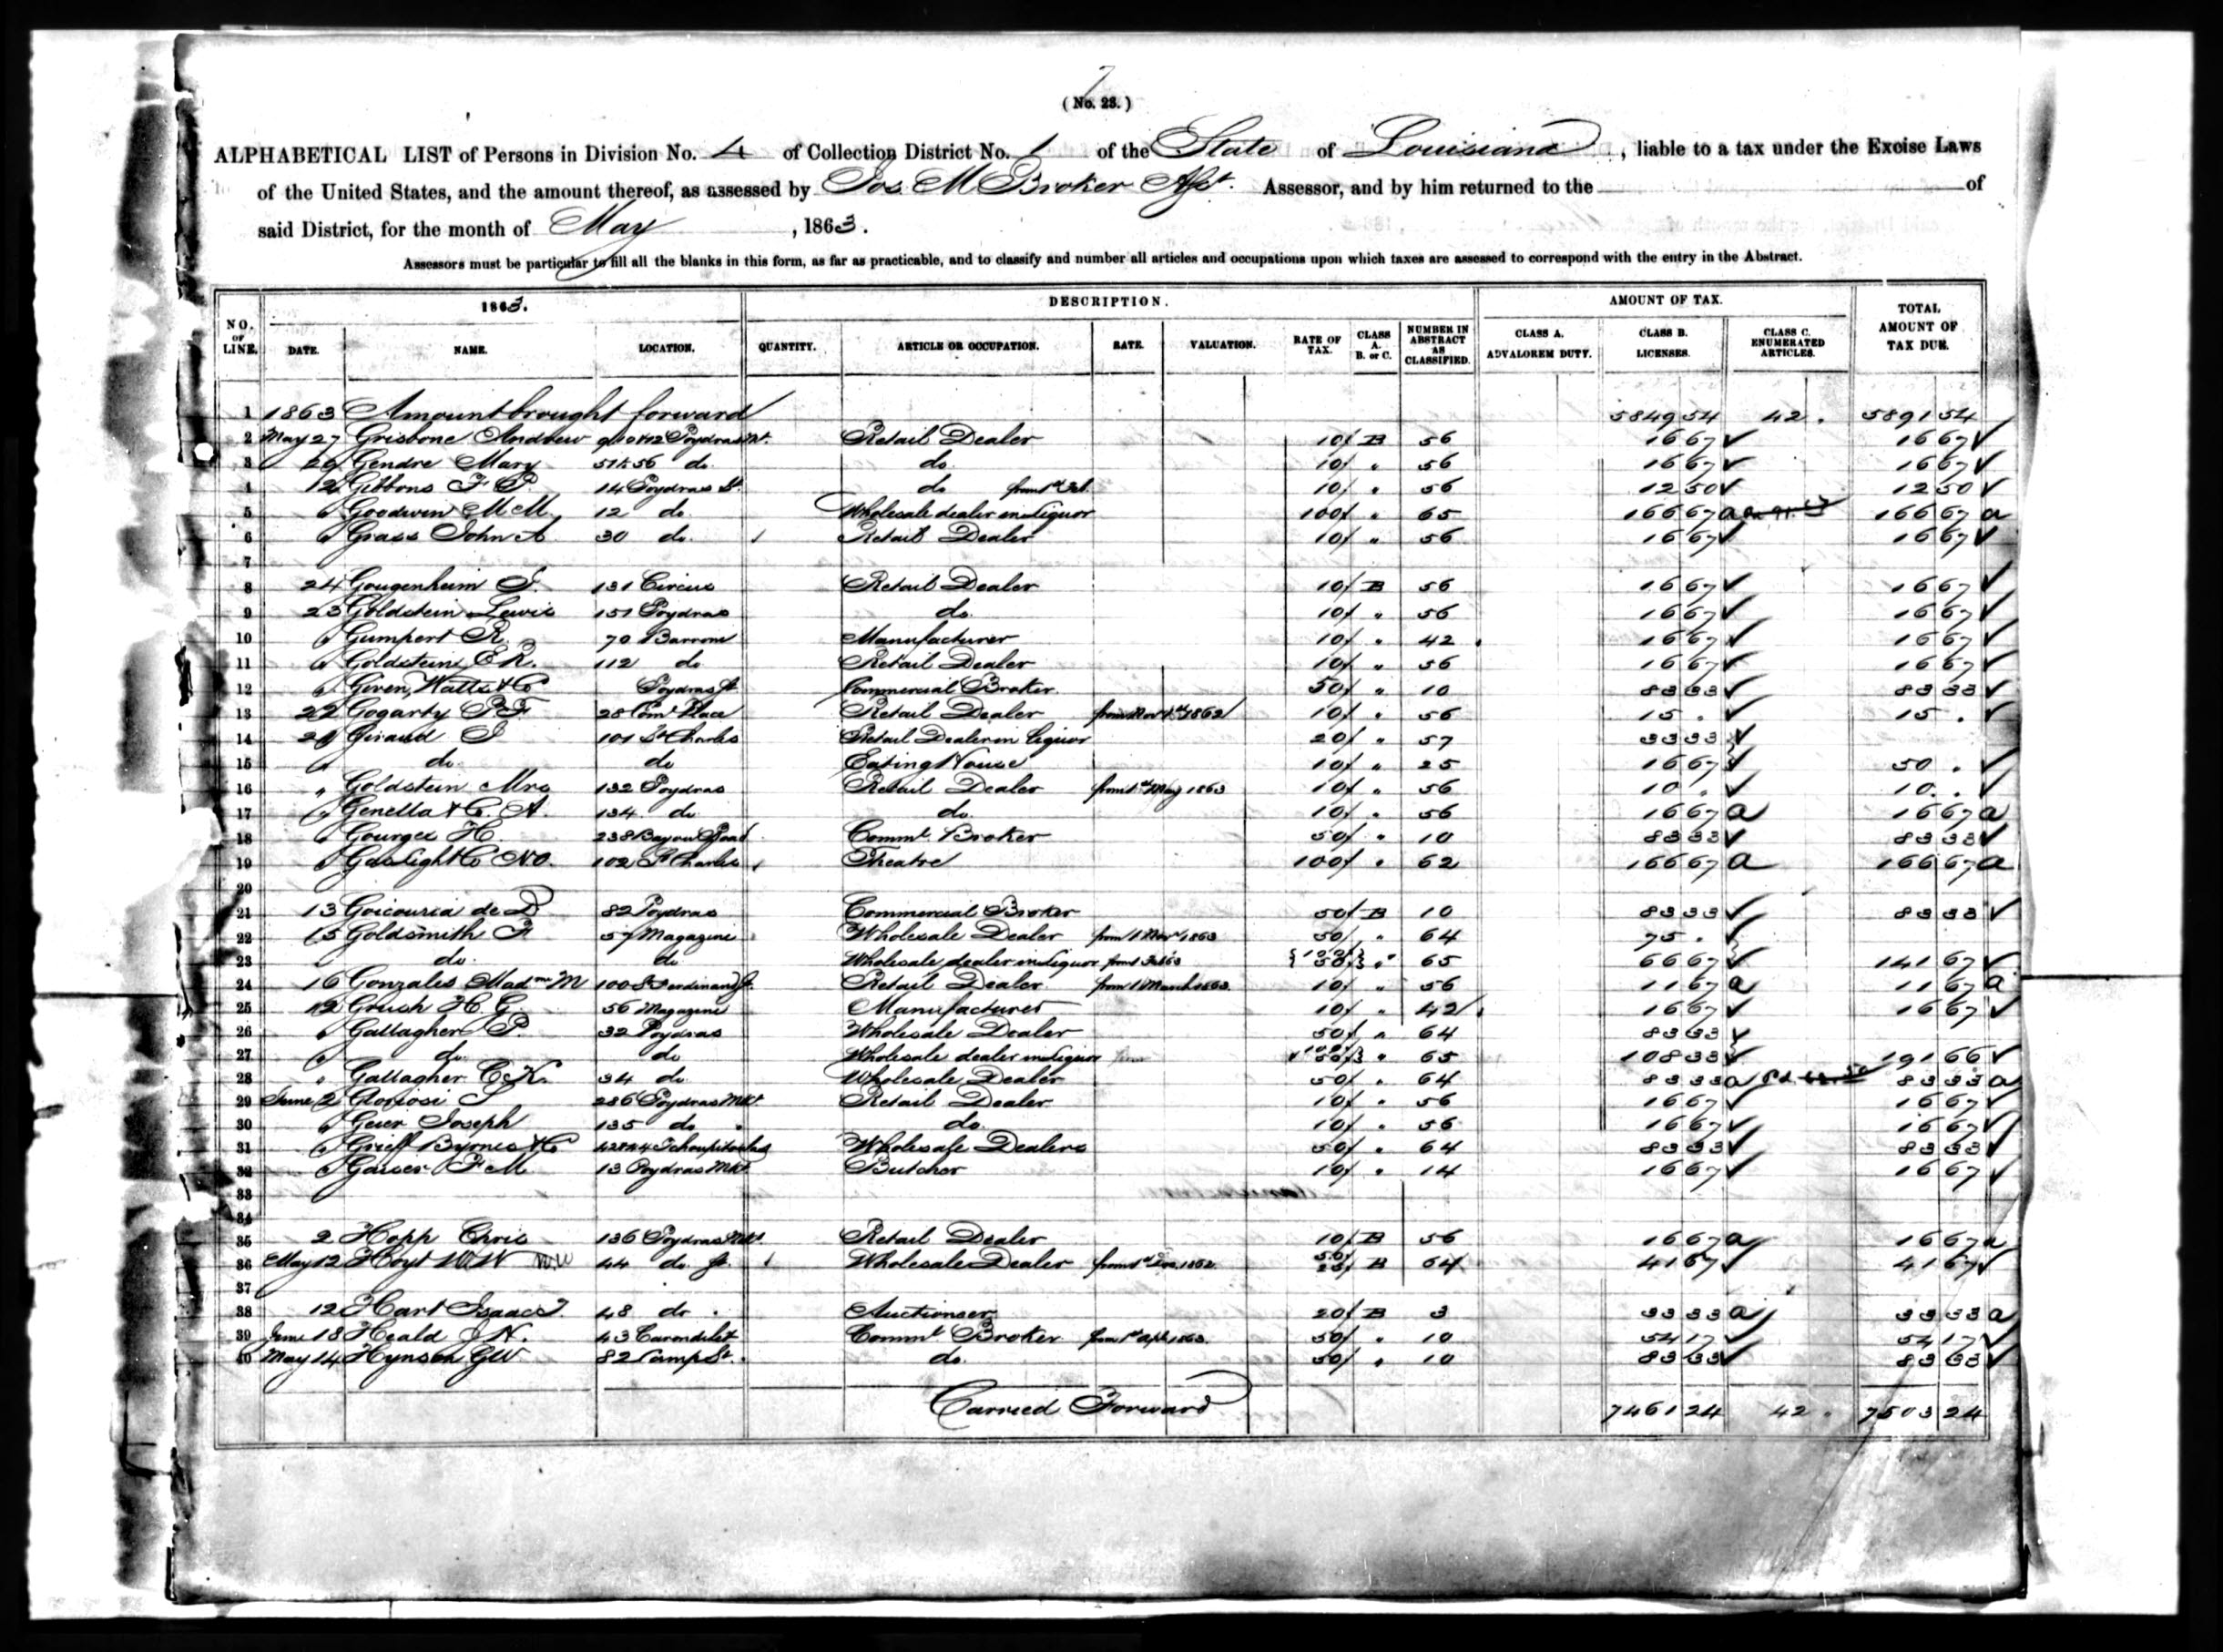 7
( No. 23. )
ALPHABETICAL LIST of Persons in Division No. 4 of Collection District No. 1 of the State of Louisiana , liable to a tax under the Excise Laws
of the United States, and the amount thereof, as assessed by Jos. M Broker Asst. Assessor, and by him returned to the of
said District, for the month of May , 1863.
Assessors must be particular to fill all the blanks in this form, as far as practicable, and to classify and number all articles and occupations upon which taxes are assessed to correspond with the entry in the Abstract.
1863. DESCRIPTION. AMOUNT OF TAX. TOTAL AMOUNT OF TAX DUE.
NO. OF LINE. DATE. NAME. LOCATION. QUANTITY. ARTICLE OR OCCUPATION. RATE. VALUATION. RATE OF TAX. CLASS A. B. or C. NUMBER IN ABSTRACT AS CLASSIFIED. CLASS A. ADVALOREM DUTY. CLASS B. LICENSES. CLASS C. ENUMERATED ARTICLES.
1 1863 Amount brought forward 5849 54 42 . 5891 54
2 May 27 Grisbone Andrew Poydras Mt. Retail Dealer 10/ B 56 16 67 ✓ 16 67 ✓
3 Gendre Mary do. do. 10/ " 56 16 67 ✓ 16 67 ✓
4 12 Gibbons F P. 14 Poydras St. do from 1st Feb. 10/ " 56 12 50 ✓ 12 50 ✓
5 " Goodwin M M. 12 do. Wholesale dealer in Liquor 100/ " 65 166 67 a 166 67 a
6 " Grass John A 30 do. Retail Dealer 10/ " 56 16 67 ✓ 16 67 ✓
7
8 24 Gougenheim S. 131 Circus Retail Dealer 10/ B 56 16 67 ✓ 16 67 ✓
9 23 Goldstein Lewis 151 Poydras do. 10/ " 56 16 67 ✓ 16 67 ✓
10 " Gumpert R. 70 Barrone Manufacturer 10/ " 42 16 67 ✓ 16 67 ✓
11 " Goldstein E R. 112 do Retail Dealer 10/ " 56 16 67 ✓ 16 67 ✓
12 " Given, Watts & Co Poydras St. Commercial Broker. 50/ " 10 83 33 ✓ 83 33 ✓
13 22 Gogarty P F 28 Coml Place Retail Dealer from Nov 1st 1862 10/ " 56 15 . ✓ 15 . ✓
14 Giraud 101 St Charles Retail Dealer in Liquor 20/ " 57 33 33 ✓
15 " do. do Eating House 10/ " 25 16 67 ✓ 50 . ✓
16 " Goldstein Mrs 132 Poydras Retail Dealer from 1st May 1863 10/ " 56 10 . ✓ 10 . ✓
17 " Genella & Co A. 134 do. do. 10/ " 56 16 67 a 16 67 a
18 " Gourges H. 238 Bayou Road Comml Broker 50/ " 10 83 33 ✓ 83 33 ✓
19 " Gas Light Co N O. 102 St Charles Theatre 100/ " 62 166 67 a 166 67 a
20
21 13 Goicouria de D 82 Poydras Commercial Broker 50/ B 10 83 33 ✓ 83 33 ✓
22 15 Goldsmith F 57 Magazine Wholesale Dealer from 1 1863 50/ " 64 75 . ✓
23 do. do Wholesale dealer in Liquor from 1 Feb 63 { 100 / 50 } " 65 66 67 ✓ 141 67 ✓
24 16 Gonzales Madme M 100 St Ferdinand St. Retail Dealer from 1 March 1863. 10/ " 56 11 67 a 11 67 a
25 12 Grush H. G. 56 Magazine Manufacturer 10/ " 42 16 67 ✓ 16 67 ✓
26 " Gallagher P. 32 Poydras Wholesale Dealer 50/ " 64 83 33 ✓
27 " do. do Wholesale dealer in Liquor 100 / 50 } " 65 108 33 ✓ 191 66 ✓
28 " Gallagher C. K. 34 do. Wholesale Dealer 50/ " 64 83 33 a 83 33 a
29 June 2 Gloriosi S 236 Poydras Mkt. Retail Dealer 10/ " 56 16 67 ✓ 16 67 ✓
30 " Geier Joseph 135 do " do. 10/ " 56 16 67 ✓ 16 67 ✓
31 " Grieff Byrnes & Co 42 & 44 Tchoupitoulas Wholesale Dealers 50/ " 64 83 33 ✓ 83 33 ✓
32 " Gaiser F M 13 Poydras Mkt. Butcher 10/ " 14 16 67 ✓ 16 67 ✓
33
34
35 2 Hopp Chris 136 Poydras Mkt. Retail Dealer 10/ B 56 16 67 a 16 67 a
36 May 12 Hoyt W W W.W 44 do. St. Wholesale Dealer from 1st Dec. 1862 50/ 25/ B 64 41 67 ✓ 41 67 ✓
37
38 12 Hart Isaac 48 do . Auctioneer 20/ B 3 33 33 a 33 33 a
39 June 18 Heald J N. 43 Carondelet Comml Broker. from 1st Apl. 1863. 50/ " 10 54 17 ✓ 54 17 ✓
40 May 14 Hynson G W 82 Camp St. do. 50/ " 10 83 33 ✓ 83 33 ✓
Carried Forward 7461 24 42 . 7503 24